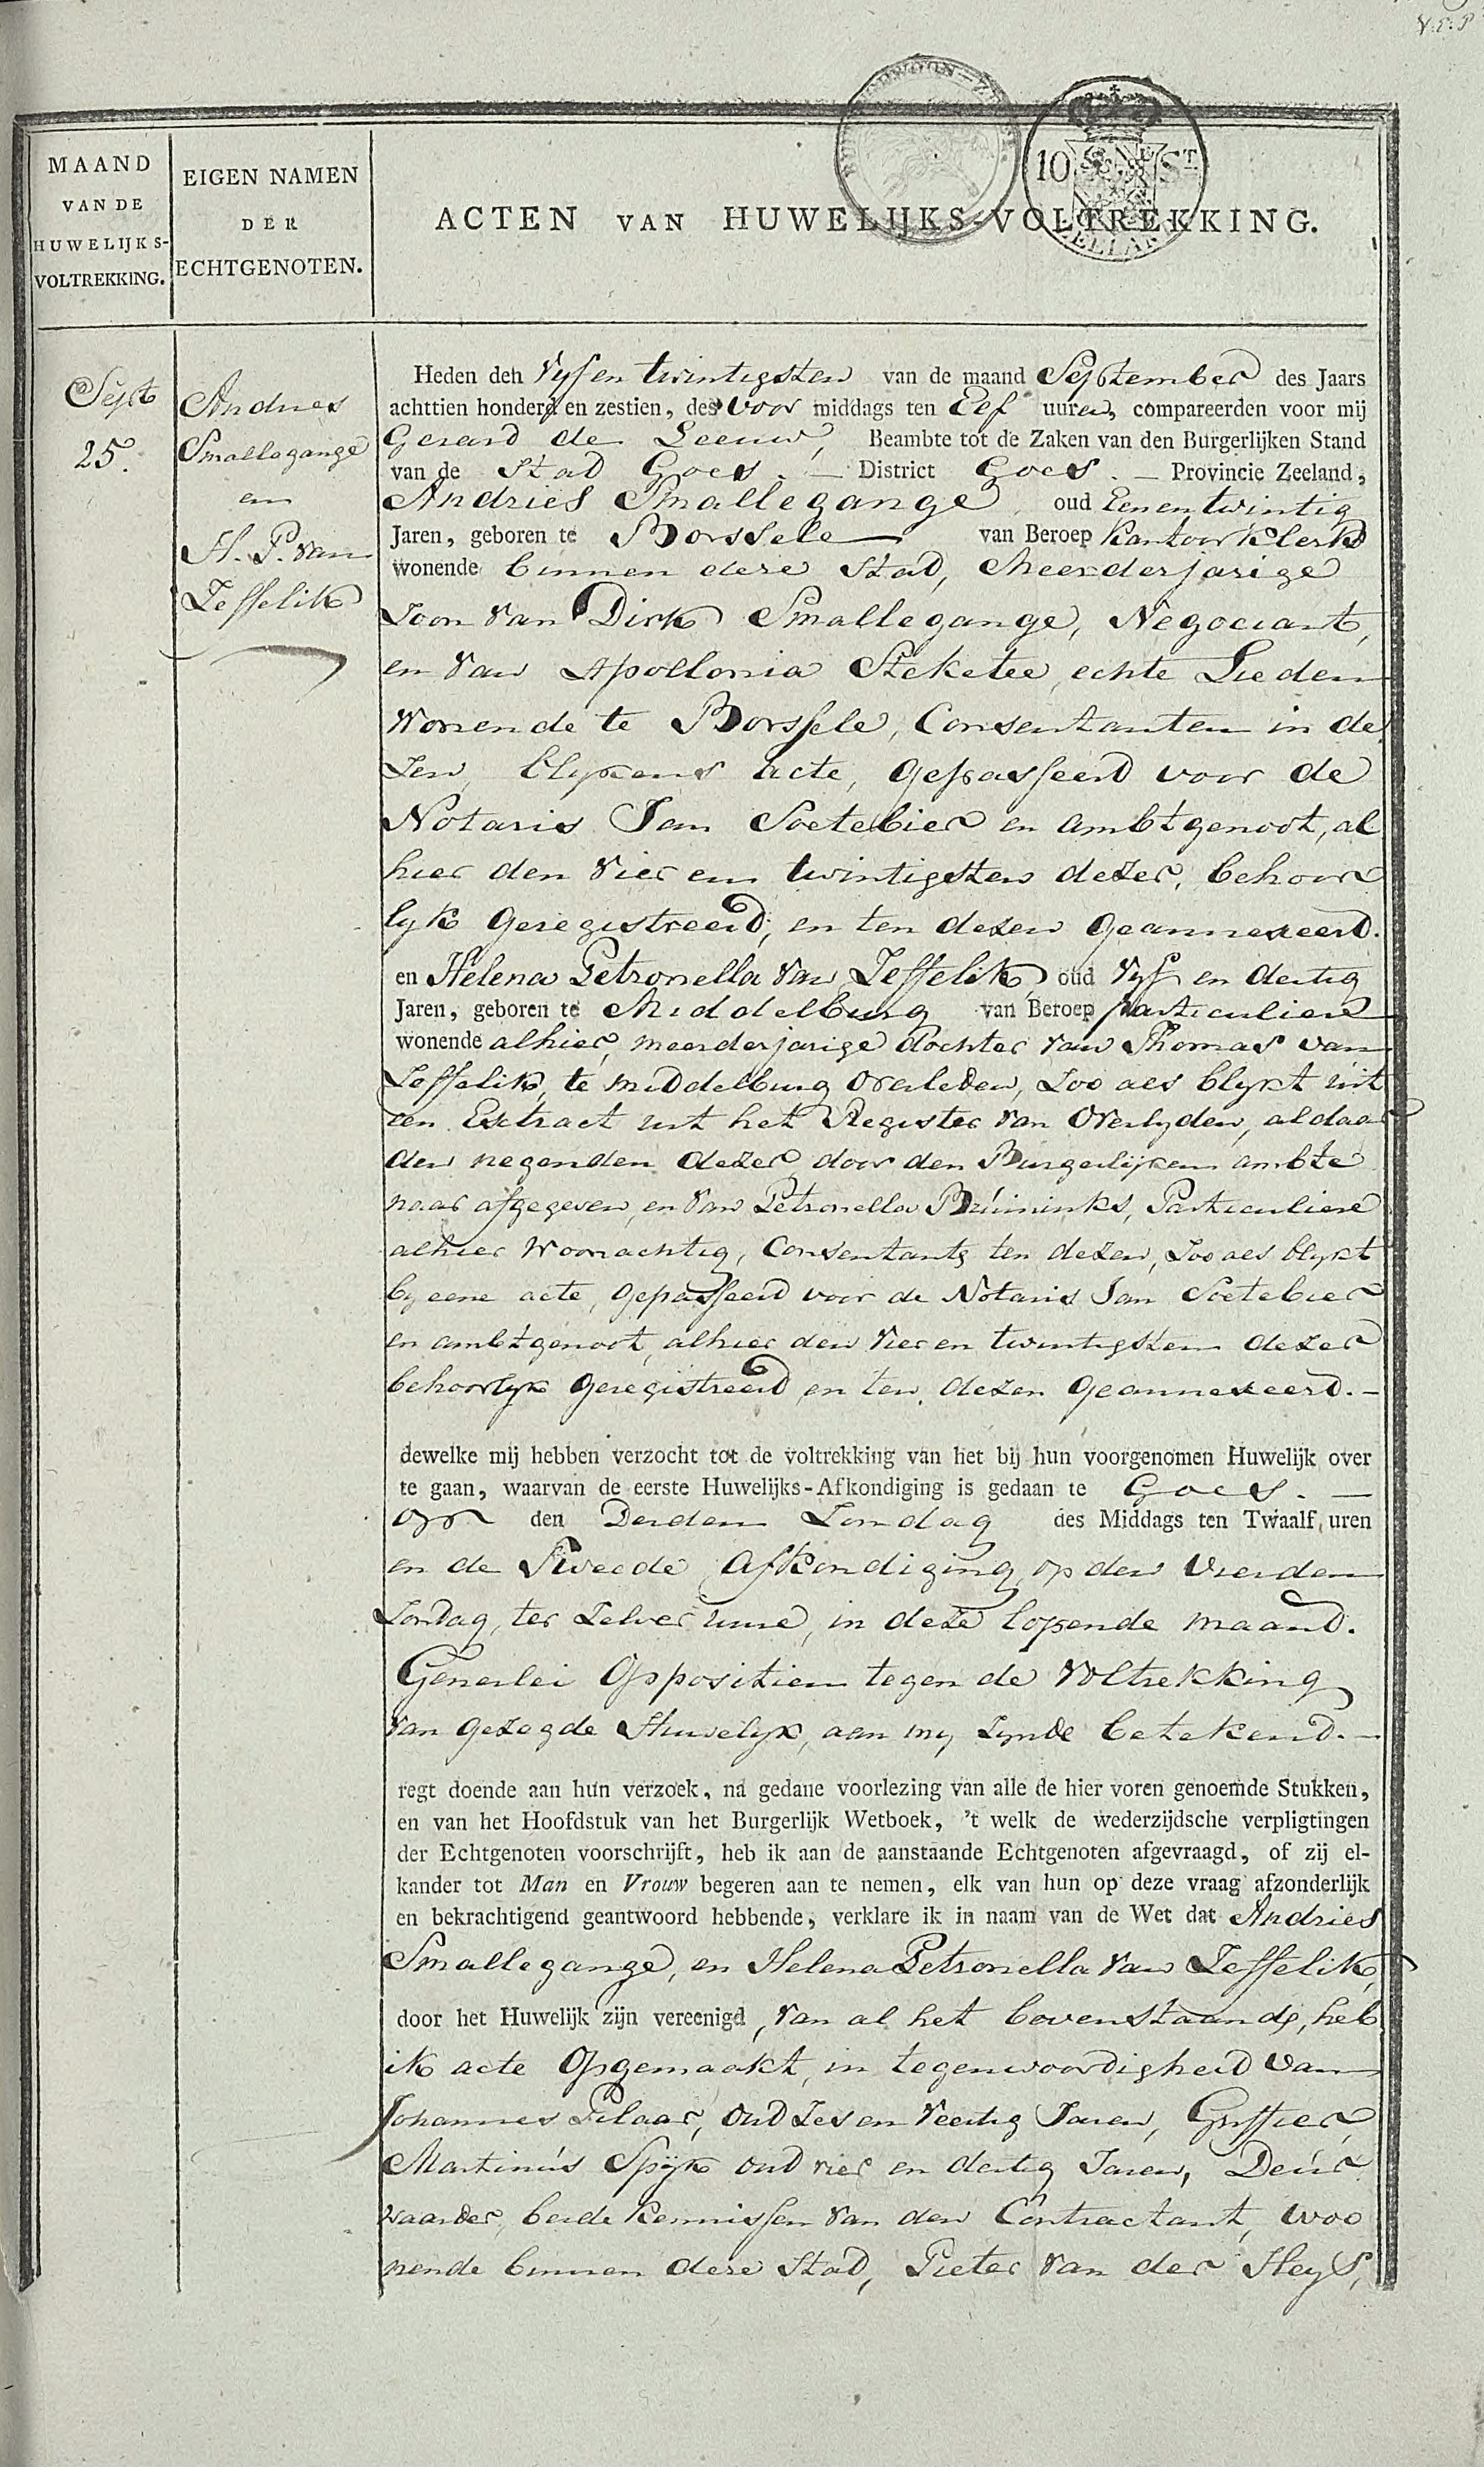 MAAND
VAN DE
HUWELIJKS-
VOLTREKKING.
EIGEN NAMEN
DER
ECHTGENOTEN.
10 ST
ZEELAND
ACTEN VAN HUWELIJKS-VOLTREKKING.
Sept
25.
Andries
Smallegange
en
H. P. van
Zeffelik
Heden den Vyf en twintigsten van de maand September des Jaars
achttien honderd en zestien, des voor middags ten Elf uuren, compareerden voor mij
Gerard de Leeuw, Beambte tot de Zaken van den Burgerlijken Stand
van de Stad Goes. — District Goes. — Provincie Zeeland,
Andries Smallegange oud Eenentwintig
Jaren, geboren te Borssele van Beroep Kantoorklerk
wonende binnen deze Stad, Meerderjarige
Zoon van Dirk Smallegange, Negociant,
en van Apollonia Steketee, echte Lieden
wonende te Borssele, Consentanten in de
zen, blykens acte, gepasseerd voor de
Notaris Jan Soetebier en ambtgenoot, al
hier den vier en twintigsten dezer, behoor
lyk geregistreerd, en ten dezen geannexeerd.
en Helena Petronella van Zeffelik, oud Vyf en dertig
Jaren, geboren te Middelburg van Beroep particuliere
wonende alhier, meerderjarige dochter van Thomas van
Zeffelik, te middelburg overleden, Zoo als blykt uit
een Extract uit het Register van Overlyden, aldaar
den negenden dezer door den Burgerlijken ambte
naar afgegeven, en van Petronella Bruininks, Particuliere
alhier Woonachtig, Consentante ten dezen, Zoo als blykt
by eene acte, gepasseerd voor de Notaris Jan Soetebier
en ambtgenoot, alhier den Vier en twintigsten dezer
behoorlyk geregistreerd en ten dezen geannexeerd. —
dewelke mij hebben verzocht tot de voltrekking van het bij hun voorgenomen Huwelijk over
te gaan, waarvan de eerste Huwelijks-Afkondiging is gedaan te Goes. —
op den Derden Zondag des Middags ten Twaalf uren
en de Tweede afkondiging op den Vierden
Zondag, ter Zelver uure, in deze lopende maand.
Generlei Oppositien tegen de Voltrekking
van gezegde Huwelyk, aan my Zynde betekend. —
regt doende aan hun verzoek, na gedane voorlezing van alle de hier voren genoemde Stukken,
en van het Hoofdstuk van het Burgerlijk Wetboek, 't welk de wederzijdsche verpligtingen
der Echtgenoten voorschrijft, heb ik aan de aanstaande Echtgenoten afgevraagd, of zij el-
kander tot Man en Vrouw begeren aan te nemen, elk van hun op deze vraag afzonderlijk
en bekrachtigend geantwoord hebbende, verklare ik in naam van de Wet dat Andries
Smallegange, en Helena Petronella van Zeffelik,
door het Huwelijk zijn vereenigd, Van al het bovenstaande, heb
ik acte opgemaakt, in tegenwoordigheid van
Johannes Pilaar, oud Zes en Veertig Jaren, Griffier,
Martinus Spijk oud vier en dertig Jaren, Deur
waarder, beide Kennissen van den Contractant, woo
nende binnen deze Stad, Pieter van der Heys,